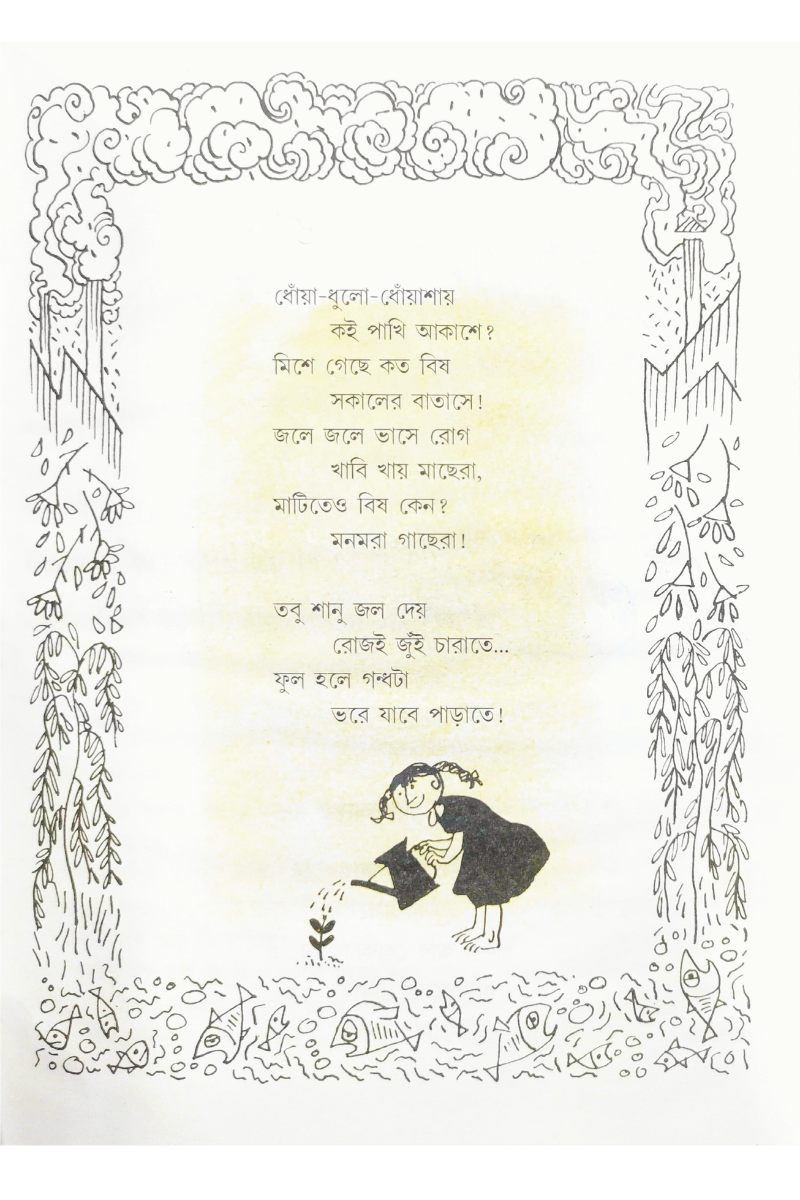 ধোঁয়া-ধুলো-ধোঁয়াশায়
কই পাখি আকাশে?
মিশে গেছে কত বিষ
সকালের বাতাসে!
জলে জলে ভাসে রোগ
খাবি খায় মাছেরা,
মাটিতেও বিষ কেন?
মনমরা গাছেরা!
তবু শানু জল দেয়
রোজই জুঁই চারাতে...
ফুল হলে গন্ধটা
ভরে যাবে পাড়াতে!